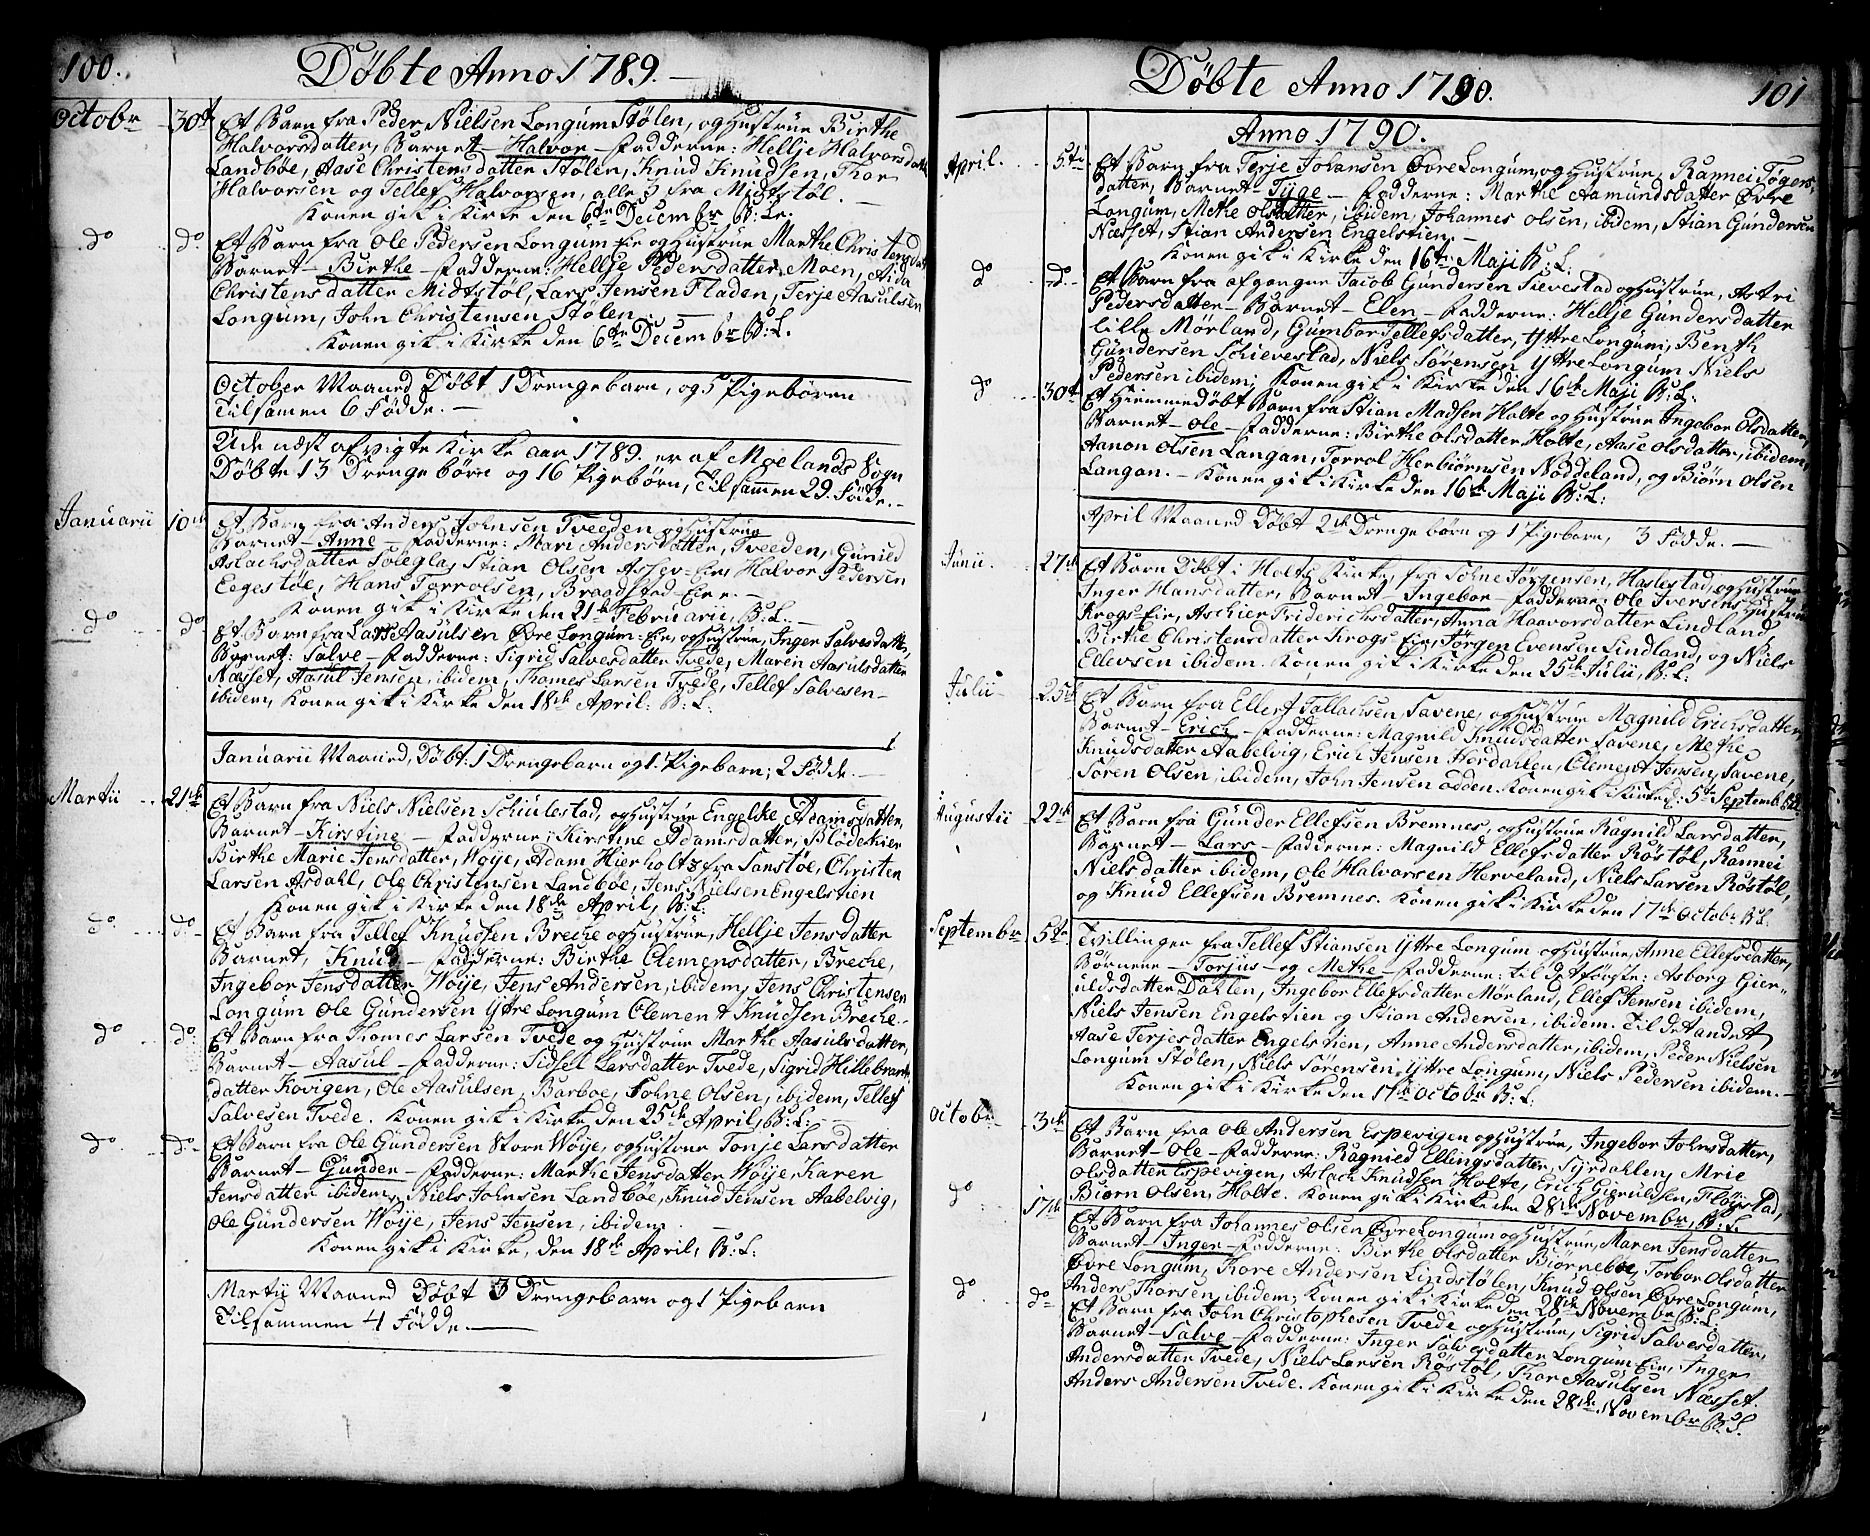 100.
Døbte Anno 1789.
Octobr 30te Et Barn fra Peder Nielsen Longum Stølen, og Hustrue Birthe
Halvorsdatter, Barnet - Halvor - Fadderne: Hellje Halvorsdatter
Landbøe, Aase Christensdatter Stølen, Knud Knudsen, Thor
Halvorsen og Tellef Halvorsen, alle 3 fra Midtstøl.
Konen gik i Kirke den 6te Decembr B: L:
do do Et Barn fra Ole Pedersen Longum Eie og Hustrue Marthe Christensdatt
Barnet - Birthe - Fadderne: Hellje Pedersdatter Moen, Aida
Christensdatter Midtstøl, Lars Jensen Fladen, Terje Aasulsen
Longum, John Christensen Stølen. -
Konen gik i Kirke den 6te Decembr B: L.
October Maaned Døbt 1 Drengebarn, og 5 Pigebørn
Tilsamen 6 Fødde. -
Udi næst afvigte Kirke aar 1789. er af Moelands Sogn
Døbte 13 Drengebørn og 16 Pigebørn, Tilsammen 29. Fødte. -
Januarii 10de Et Barn fra Anders Johnsen Tveeden og Hustrue
Barnet - Anne - Fadderne: Mari Andersdatter, Tveeden, Gunild
Aslachsdatter Soleglas, Stian Olsen Asjer-Eie, Halvor Pedersen
Eegestøl, Hans Torrolsen, Braadstad-Eie. -
Konen gik i Kirke den 21de Februarii, B: L. -
do do Et Barn fra Lars Aasulsen Øvre Longum-Eie, og Hustrue, Inger Salvesdatter,
Barnet: Salve - Fadderne: Sigrid Salvesdatter Tvede, Maren Aasulsdatter
Næsset, Aasul Jensen, ibidem, Thomes Larsen Tvede, Tellef Salvesen
ibidem, Konen gik i Kirke den 18de April: B: L:
Januarii Maaned, Døbt: 1 Drengebarn og 1. Pigebarn; 2 Fødde. -
Martii 21de Et Barn fra Niels Nielsen Schiulestad, og Hustrue Engelke Adamsdatter,
Barnet - Kirstine - Fadderne: Kirstine Adamsdatter, Blødekier
Birthe Marie Jensdatter, Woje, Adam Hierholtz fra Sanstøe, Christen
Larsen Asdahl, Ole Christensen Landbøe, Jens Nielsen Engelstien
Konen gik i Kirke den 18de April, B: L:
do do Et Barn fra Tellef Knudsen Breche og Hustrue, Hellje Jensdatter
Barnet, Knud - Fadderne: Birthe Clemensdatter, Breche,
Ingebor Jensdatter, Wøije, Jens Andersen, ibidem, Jens Christensen
Longum Ole Gundersen Yttre Longum Clement Knudsen Breche.
do do Et Barn fra Thomes Larsen Tvede og Hustrue Marthe Aasulsdatter,
Barnet - Aasul - Fadderne: Sidsel Larsdatter Tvede, Sigrid Hillebrants
datter Kovigen, Ole Aasulsen, Barboe, Tohne Olsen, ibidem, Tellef
Salvesen Tvede. Konen gik i Kirke den 25de April, B: L: -
do do Et Barn fra Ole Gundersen Store Wøije, og Hustrue Tonje Larsdatter
Barnet - Gunder - Fadderne: Marthe Jensdatter Wøije, Karen
Jensdatter ibidem, Niels Johnsen Landbøe, Knud Jensen Aabelvig,
Ole Gundersen Wøije, Jens Jensen, ibidem.
Konen gik i Kirke, den 18de April, B: L:
Martii Maaned Døbt 3 Drengebarn og 1 Pigebarn
Tilsammen 4 Fødde.
Døbte Anno 1790.
101
Anno 1790.
April. 5te Et Barn fra Terje Johansen Øvre Longum, og Hustrue, Rannei Togers
datter, Barnet - Tyge - Fadderne: Marthe Aamundsdatter Øvre
Longum, Methe Olsdatter, ibidem, Johannes Olsen, ibidem, Stian Gundersen
Næsset, Stian Andersen Engelstien. -
Konen gik i Kirke den 16te Maji B: L:
do do Et Barn fra afgangne Jacob Gundersen Sievestad og Hustrue, Astri
Pedersdatter - Barnet - Elen - Fadderne: Hellje Gundersdatter
Lille Mørland, Gumbor Tellefsdatter, Yttre Longum, Benth
Gundersen Schievestad, Niels Sørensen Yttre Longum Niels
Pedersen ibidem; Konen gik i Kirke den 16de Maji B: L:
do 30te Et Hiemmedøbt Barn fra Stian Madsen Holte og Hustrue Ingebor Olsdatter,
Barnet - Ole - Fadderne: Birthe Olsdatter Holte, Aase Olsdatter, ibidem,
Aanon Olsen Langan, Torrol Herbiørnsen Noddeland, og Biørn Olsen
Langan. - Konen gik i Kirke den 16de Maji B: L:
April Maaned Døbt 2de Drengebørn og 1 Pigebarn, 3 Fødde. -
Junii. 27de Et Barn Døbt i Holte Kirke, fra Tohne Jørgensen, Haslestad, og Hustrue
Inger Hansdatter, Barnet - Ingebor - Fadderne: Ole Iversens Hustrue
Krogs-Eie, Aschier Friderichsdatter, Anna Haavorsdatter Lindland,
Birthe Christensdatter Krogs Eie, Jørgen Evensen Lindland, og Niels
Ellevsen ibidem. Konen gik i Kirke den 25de Julii, B: L:
Julii 25de Et Barn fra Ellef Tallachsen, Savene, og Hustrue Magnild Erichsdatter,
Barnet - Erich - Fadderne: Magnild Knudsdatter Savene, Methe
Knudsdatter Aabelvig, Erich Jensen Hordahlen, Clement Jensen, Savene,
Søren Olsen ibidem, John Jensen Odden. Konen gik i Kirke d: 5te Septembr B: L:
Augustii 22de Et Barn fra Gunder Ellefsen Bremnes, og Hustrue Ragnild Larsdatter,
Barnet - Lars - Fadderne: Magnild Ellefsdatter Røstøl, Rannei
Nielsdatter ibidem, Ole Halvorsen Herveland, Niels Larsen Røstøl,
og Knud Ellefsen Bremnes. Konen gik i Kirke den 17de Octobr B: L:
Septembr 5te Tvillinger fra Tellef Stiansen Yttre Longum og Hustrue, Anne Ellefsdatter,
Børnene - Torjus - og Methe - Fadderne: til det første: Asborg Gier-
uldsdatter Dahlen, Ingebor Ellefsdatter Mørland, Ellef Jensen ibidem,
Niels Jensen Engelstien og Stian Andersen, ibidem. Til det andet
Aase Terjesdatter Engelstien, Anne Andersdatter, ibidem, Peder Nielsen
Longum Stølen, Niels Sørensen, Yttre Longum, Niels Pedersen ibidem. -
Konen gik i Kirke den 17de Octobr B: L:
Octobr 3de Et Barn fra Ole Andersen Espevigen og Hustrue, Ingebor Johnsdatter,
Barnet - Ole - Fadderne: Ragnild Ellingsdatter, Syrdahlen, Mrie
Olsdatter Espevigen, Aslach Knudsen Holte, Erich Gieruldsen, Fløystad,
Biørn Olsen, Holte. Konen gik i Kirke den 28de Novembr, B: L
do 17de Et Barn fra Johannes Olsen Øvre Longum og Hustrue, Maren Jensdatter
Barnet - Inger - Fadderne: Birthe Olsdatter Biørneboe, Torbor Olsdatter
Øvre Longum, Tore Andersen Lindstølen, Knud Olsen Øvre Longum,
Anders Thorsen, ibidem; Konen gik i Kirke den 28de Novembr B: L:
do do Et Barn fra John Christophesen Tvede og Hustrue, Sigrid Salvesdatter,
Barnet - Salve - Fadderne: Inger Salvesdatter Longum Eie, Inger
Andersdatter Tvede, Niels Larsen Røstøl, Thor Aasulsen Næsset.
Anders Andersen Tvede. Konen gik i Kirke den 28de Novembr B: L.